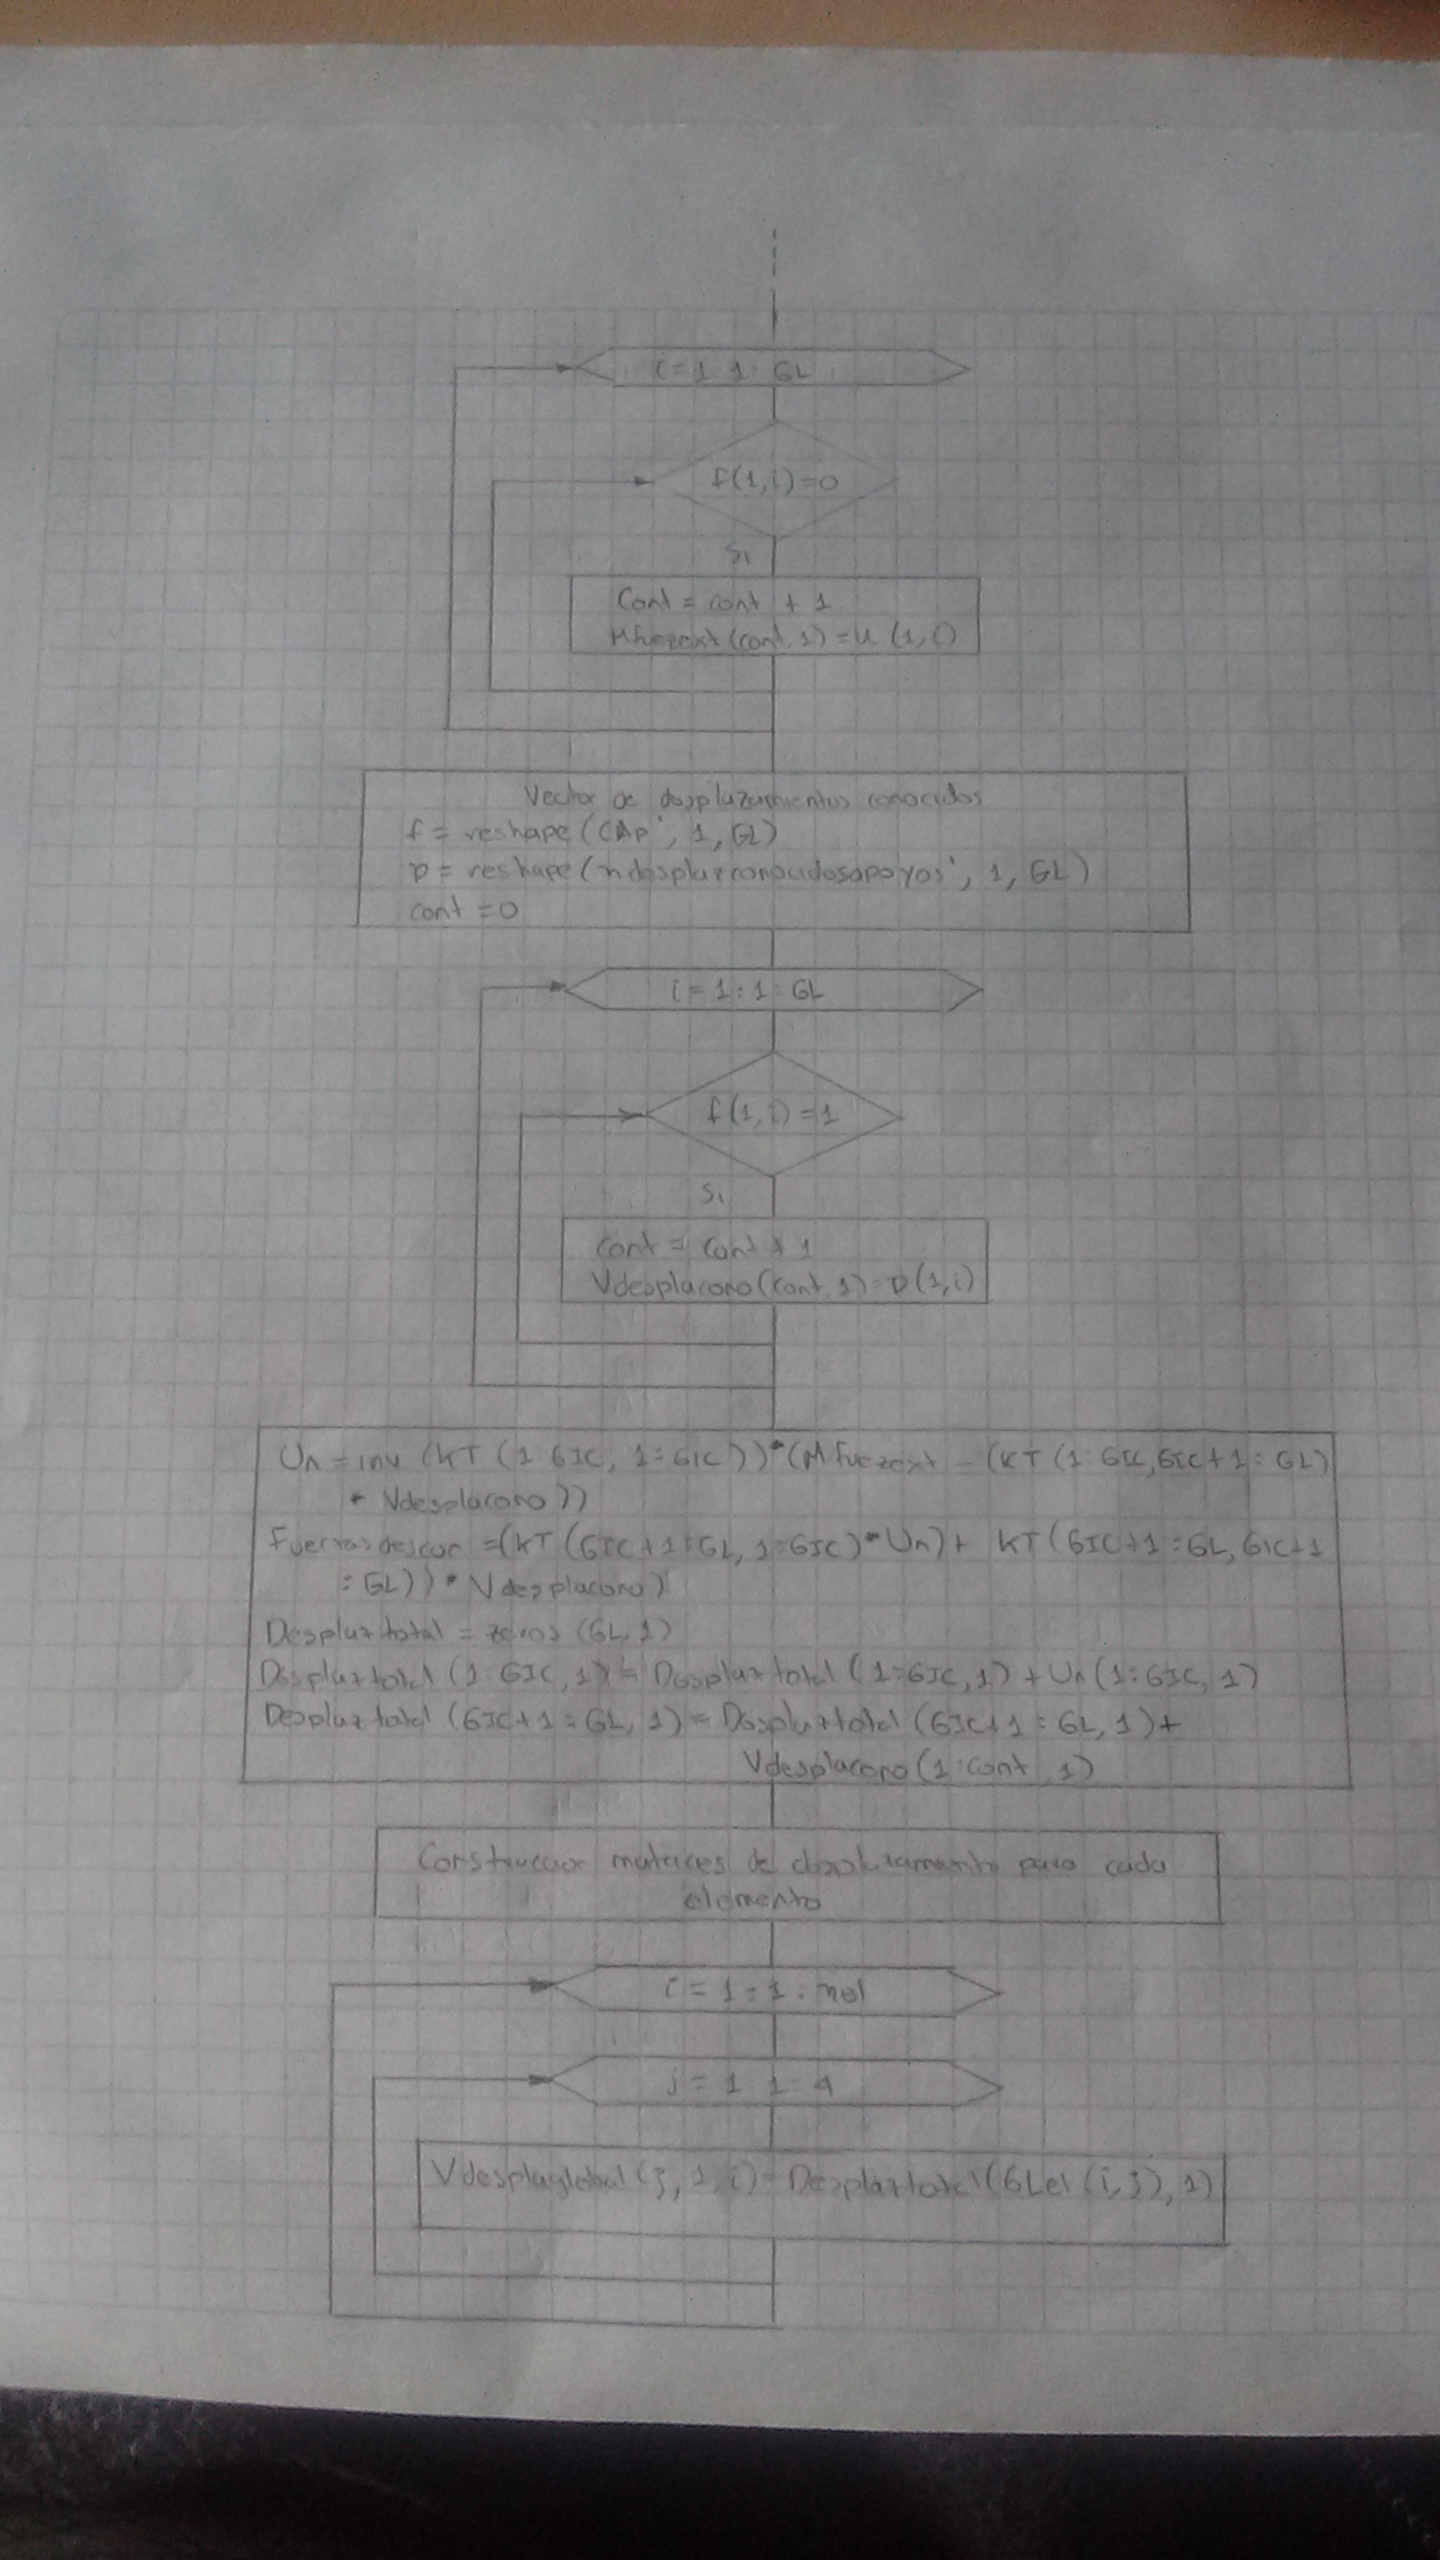 i = 1 : 1 : GL
f(1,i)=0
Si
Cont = cont + 1
Mfuezext (cont, 1) = u (1, i)
Vector de desplazamientos conocidos
f = reshape (CAp', 1, GL)
D = reshape (ndesplazconocidosapoyos', 1, GL)
cont = 0
i = 1 : 1 : GL
f(1,i) = 1
Si
cont = cont + 1
Vdesplacono (cont, 1) = D (1,i)
Un = inv (KT (1 : GIC, 1 : GIC)) * (Mfuezext - (KT (1 : GIC, GIC+1 : GL)
* Vdesplacono ))
Fuerzasdescon = (KT (GIC+1 : GL, 1 : GIC) * Un) + KT (GIC+1 : GL, GIC+1
: GL)) * Vdesplacono)
Desplaztotal = zeros (GL, 1)
Desplaztotal (1 : GIC, 1) = Desplaztotal (1 : GIC, 1) + Un (1 : GIC, 1)
Desplaztotal (GIC+1 : GL, 1) = Desplaztotal (GIC+1 : GL, 1) +
Vdesplacono (1 : cont, 1)
Construccion matrices de desplazamiento para cada
elemento
i = 1 : 1 : nel
j = 1 : 1 : 4
Vdesplaglobal (j, 1, i) = Desplaztotal (GLel (i, j), 1)